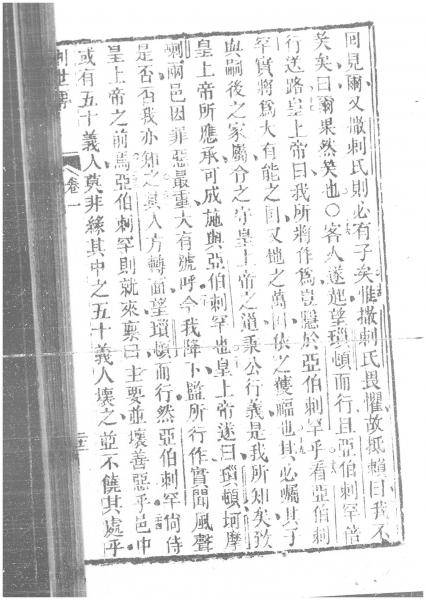 回見爾又撒剌氏則必有子矣惟撒剌氏畏懼故抵賴曰我不
笑矣曰爾果然笑也○客人遂起望瑣頓而行且亞伯剌罕偕
行送路皇上帝曰我所將作為豈隱於亞伯剌罕乎看亞伯剌
罕實將為大有能之國又地之萬國俟之獲福也其必囑其子
與嗣後之家屬令之守皇上帝之道秉公行義是我所知矣致
皇上帝所應承可成施與亞伯剌罕也皇上帝遂曰瑣頓坷摩
剌兩邑因罪惡最重大有號呼今我降下監所行作實聞風聲
是否否我亦知之其人方轉面望瑣頓而行然亞伯剌罕尚侍
皇上帝之前焉亞伯剌罕則就來稟曰主要並壞善惡乎邑中
或有五十義人莫非緣其中之五十義人壞之並不饒其處乎
創世傳 卷一